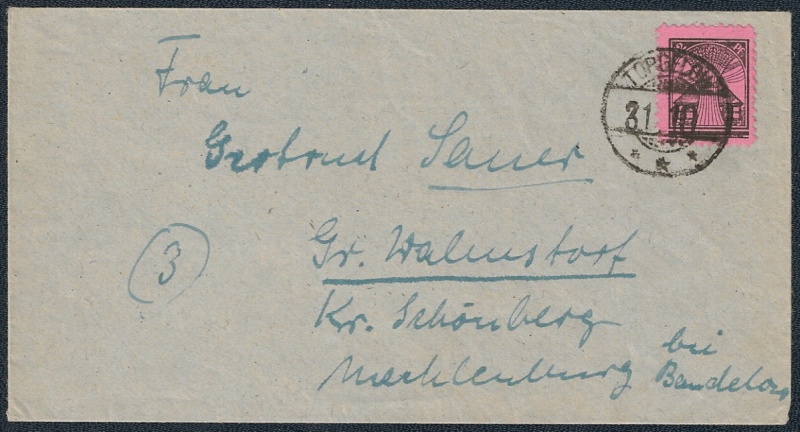 PF
TORGELOW
31. 10
Frau
Gertrud Sauer
3
Gr. Walmstorf
Kr. Schönberg
Mecklenburg bei